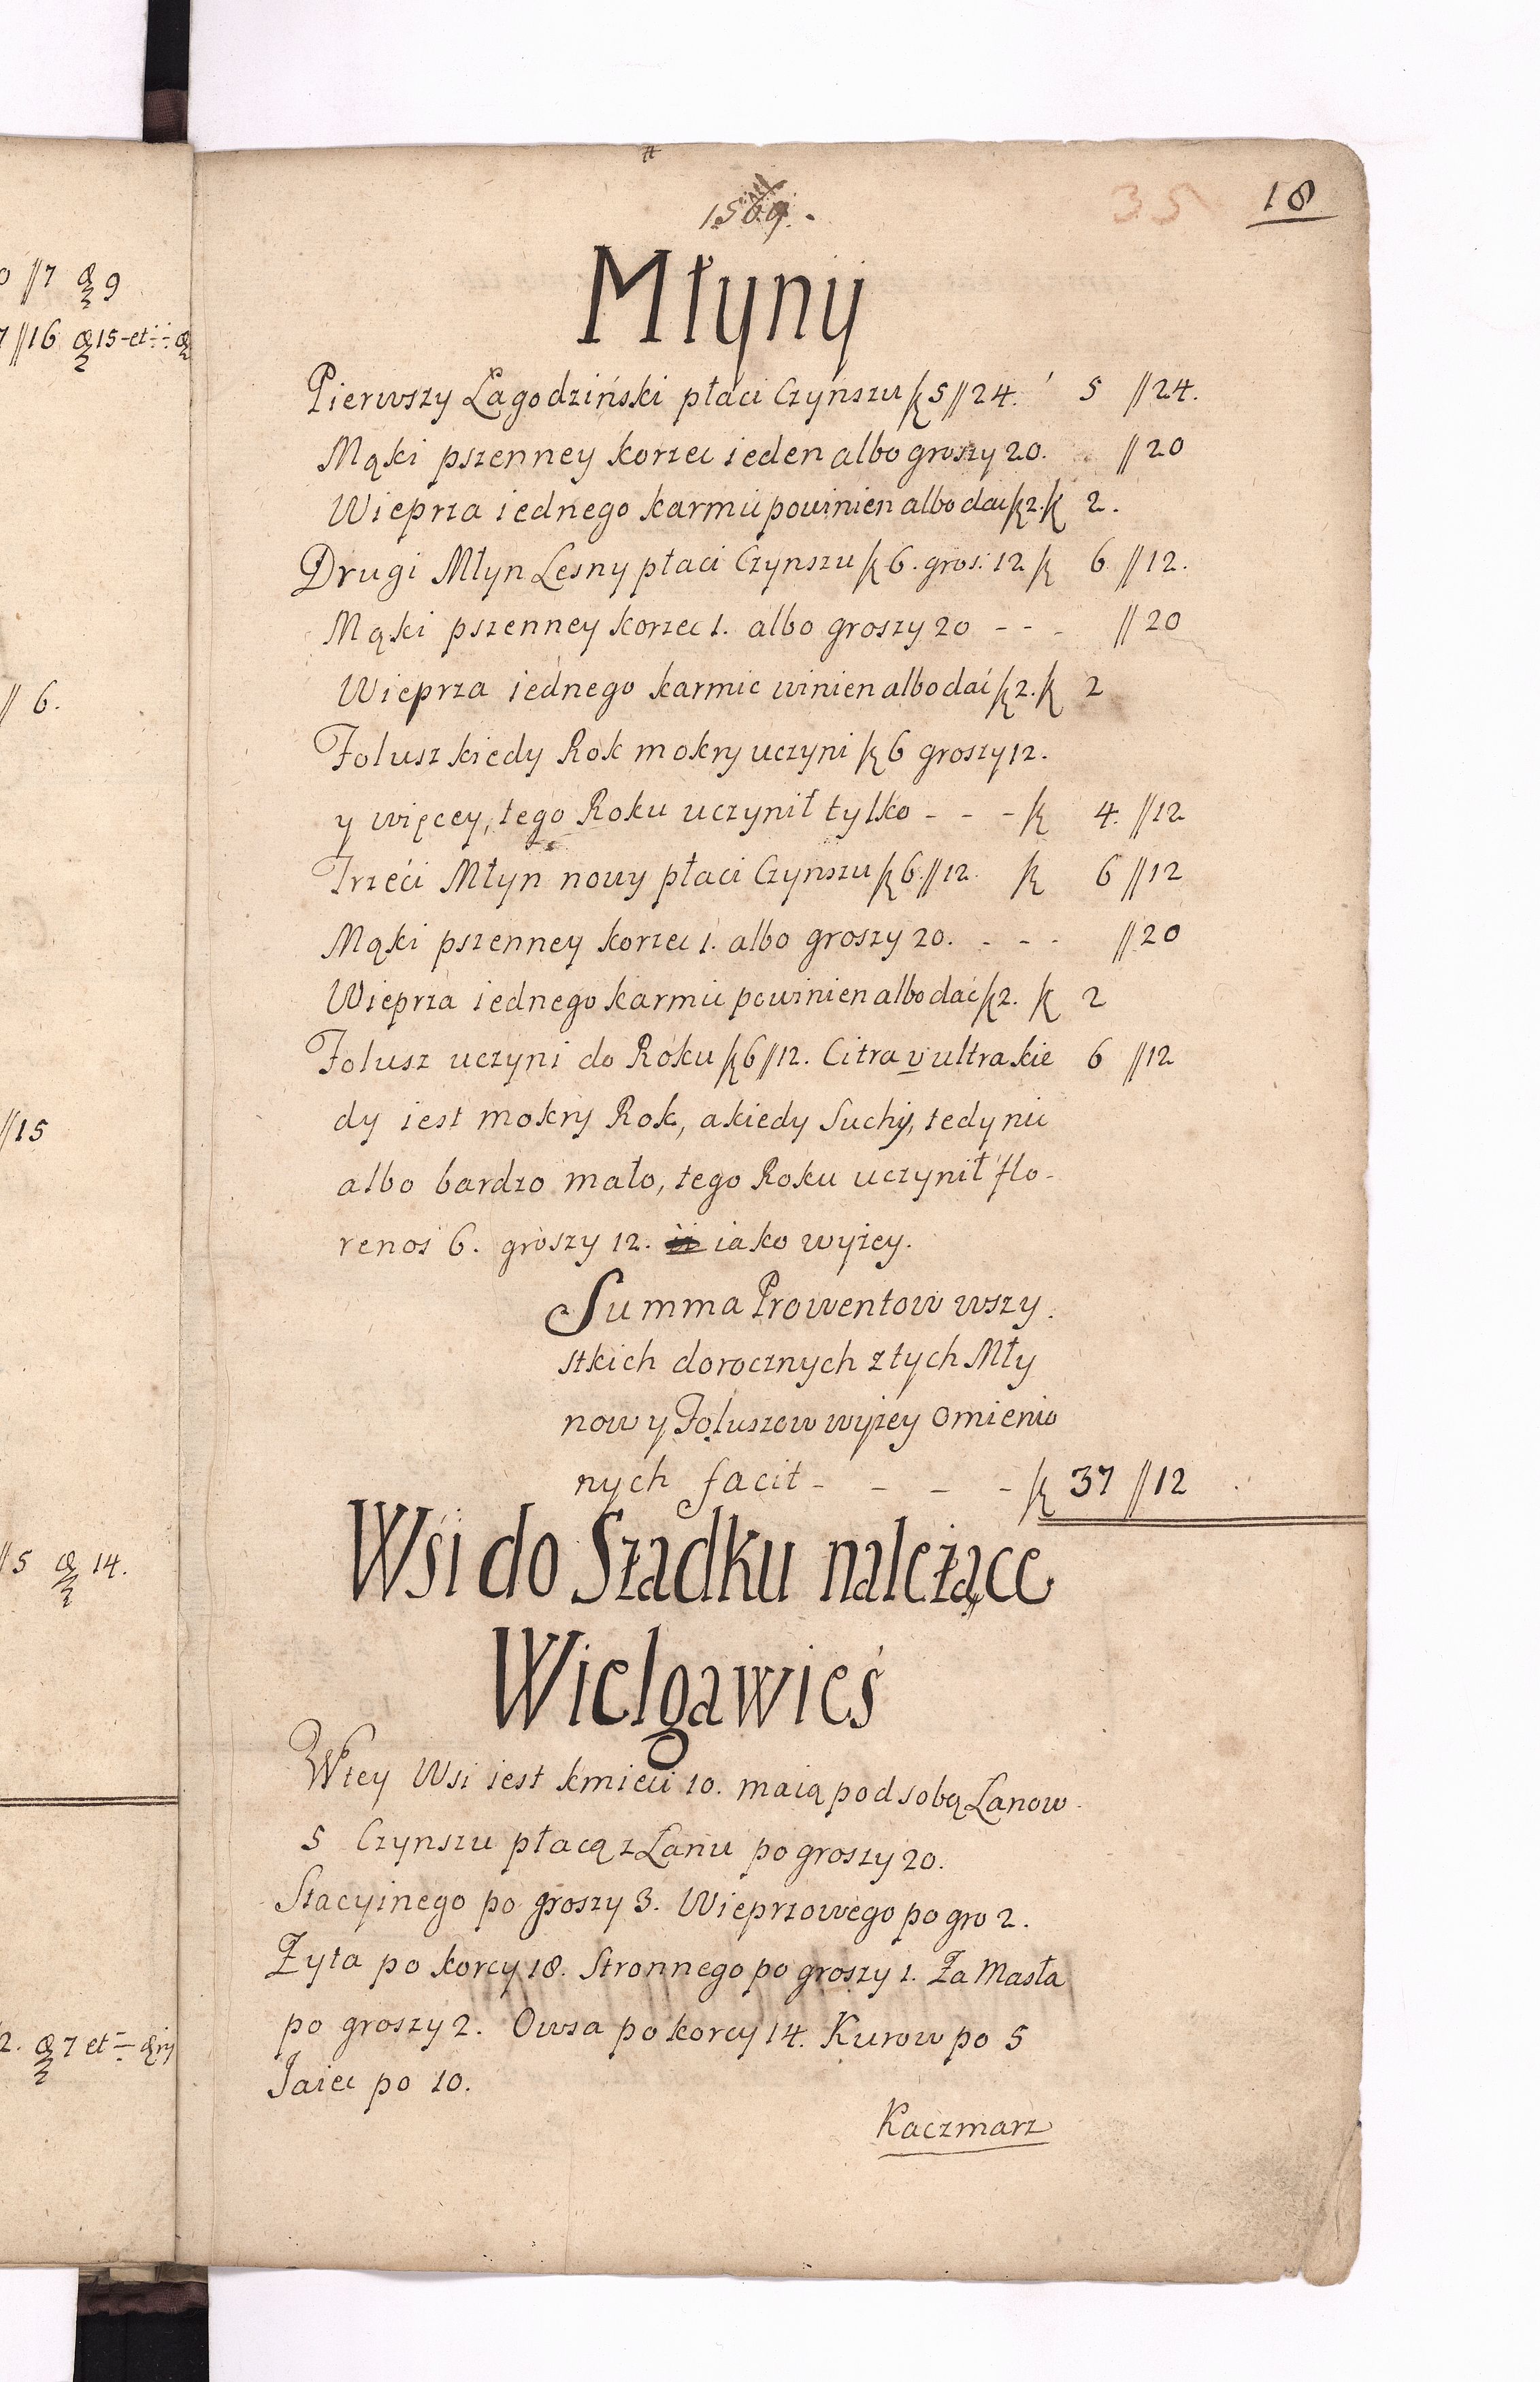 1569.
35 18
Młyny
Pierwszy Łagodziński płaci Czynszu fl 5 // 24. 5 // 24.
Mąki pszenney korzec ieden albo groszy 20. // 20
Wieprza iednego karmić powinien albo dać fl 2. fl 2.
Drugi Młyn Lesny płaci Czynszu fl 6. gros: 12 fl 6 // 12.
Mąki pszenney korzec 1. albo groszy 20 - - - // 20
Wieprza iednego karmic winien albo dać fl 2. fl 2
Folusz kiedy Rok mokry uczyni fl 6 groszy 12.
y więcey, tego Roku uczynił tylko - - - fl 4. // 12
Trzeći Młyn nowy płaci Czynszu fl 6. // 12. fl 6 // 12
Mąki pszenney korzec 1. albo groszy 20. - - - // 20
Wieprza iednego karmić powinien albo dać fl 2. fl 2
Folusz uczyni do Roku fl 6 // 12. Citra v ultra kie 6 // 12
dy iest mokry Rok, a kiedy Suchy, tedy nic
albo bardzo mało, tego Roku uczynił flo-
renos 6. groszy 12. iako wyżey.
Summa Prowentow wszy
stkich dorocznych z tych Mły
now y Foluszow wyżey omienio
nych facit - - - - fl 37 // 12
Wśi do Szadku należące
Wielgawieś
W tey Wsi iest kmieci 10. maią pod sobą Lanow
5 Czynszu płacą z Łanu po groszy 20.
Stacyinego po groszy 3. Wieprzowego po gro 2.
Żyta po korcy 18. Stronnego po groszy 1. Za Masła
po groszy 2. Owsa po korcy 14. Kurow po 5
Jaiec po 10.
Kaczmarz
// 7 9
// 16 15 et
// 6.
// 15
// 5 14.
2. 7 et